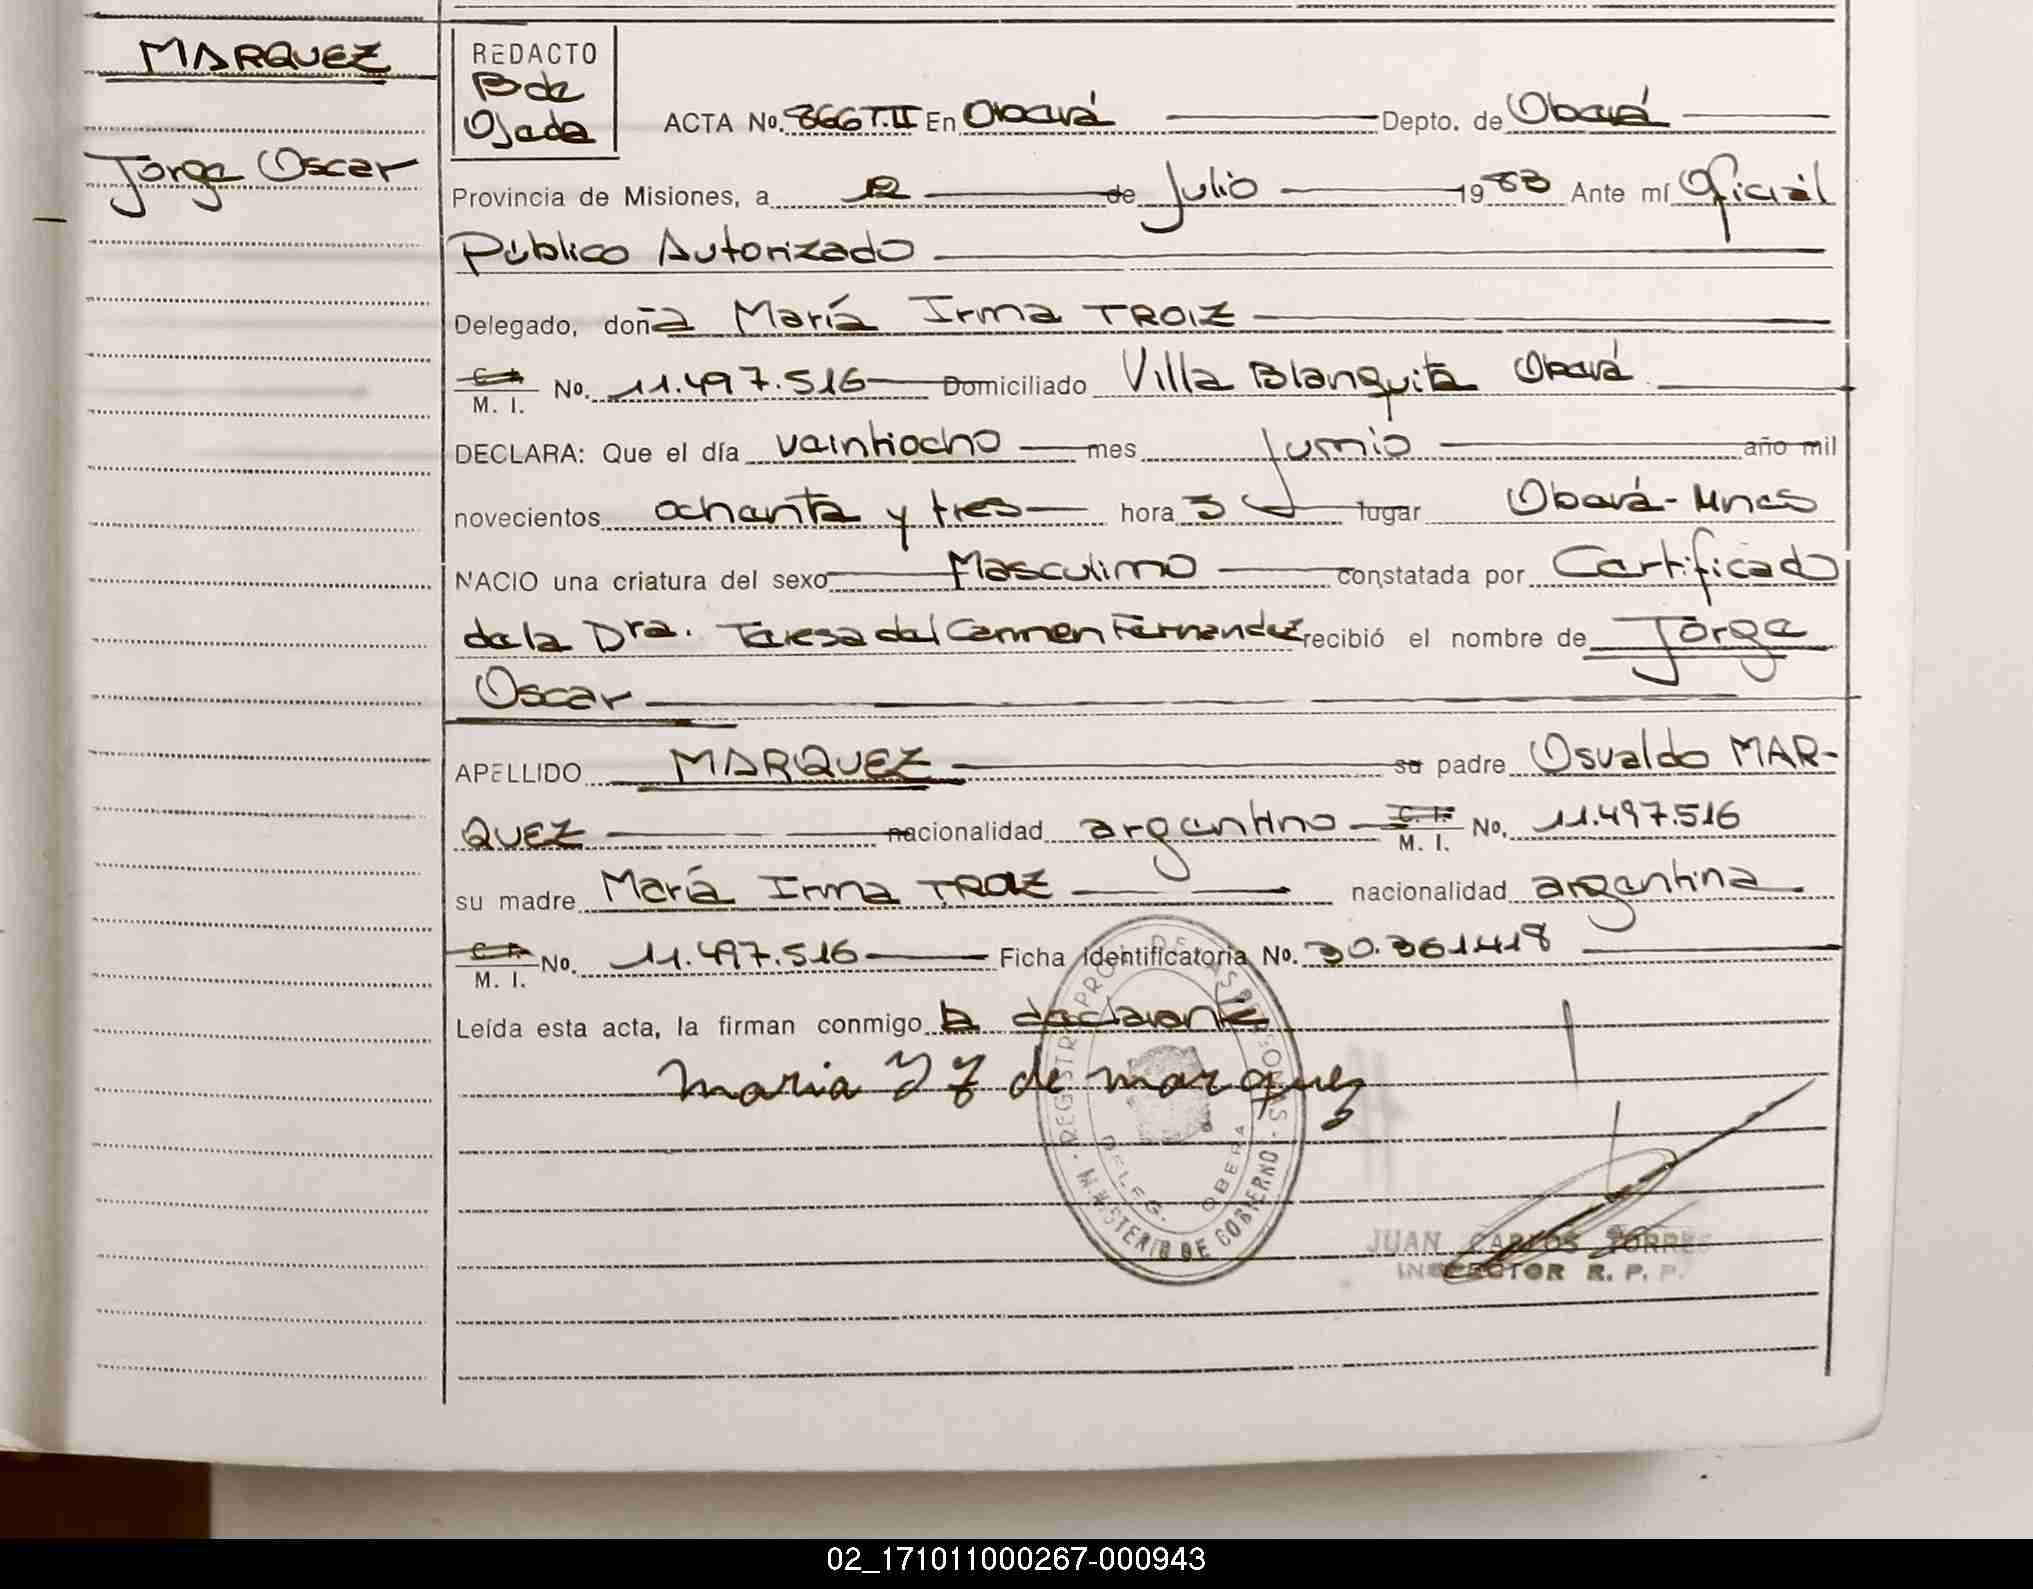 MARQUEZ
Jorge Oscar
REDACTO
B de
Ojeda
ACTA No. 866 T.II En Oberá Depto. de Oberá
Provincia de Misiones, a 12 de Julio 1983 Ante mí Oficial
Público Autorizado
Delegado, doña María Irma TROIZ
C. I. M. I. No. 11.497.516 Domiciliado Villa Blanquita Oberá
DECLARA: Que el día veintiocho mes Junio año mil
novecientos ochenta y tres hora 3 lugar Oberá-Mnes
NACIO una criatura del sexo Masculino constatada por Certificado
de la Dra. Teresa del Carmen Fernandez recibió el nombre de Jorge
Oscar
APELLIDO MARQUEZ su padre Osvaldo MAR-
QUEZ nacionalidad argentino C. I. M. I. No. 11.497.516
su madre María Irma TROIZ nacionalidad argentina
C. I. M. I. No. 11.497.516 Ficha identificatoria No. 30.361.418
Leída esta acta, la firman conmigo la declarante
Maria de Marquez
REGISTRO PROV. DE LAS PERSONAS
DELEG. OBERA
MINISTERIO DE GOBIERNO
JUAN CARLOS TORRES
INSPECTOR R. P. P.
02_171011000267-000943